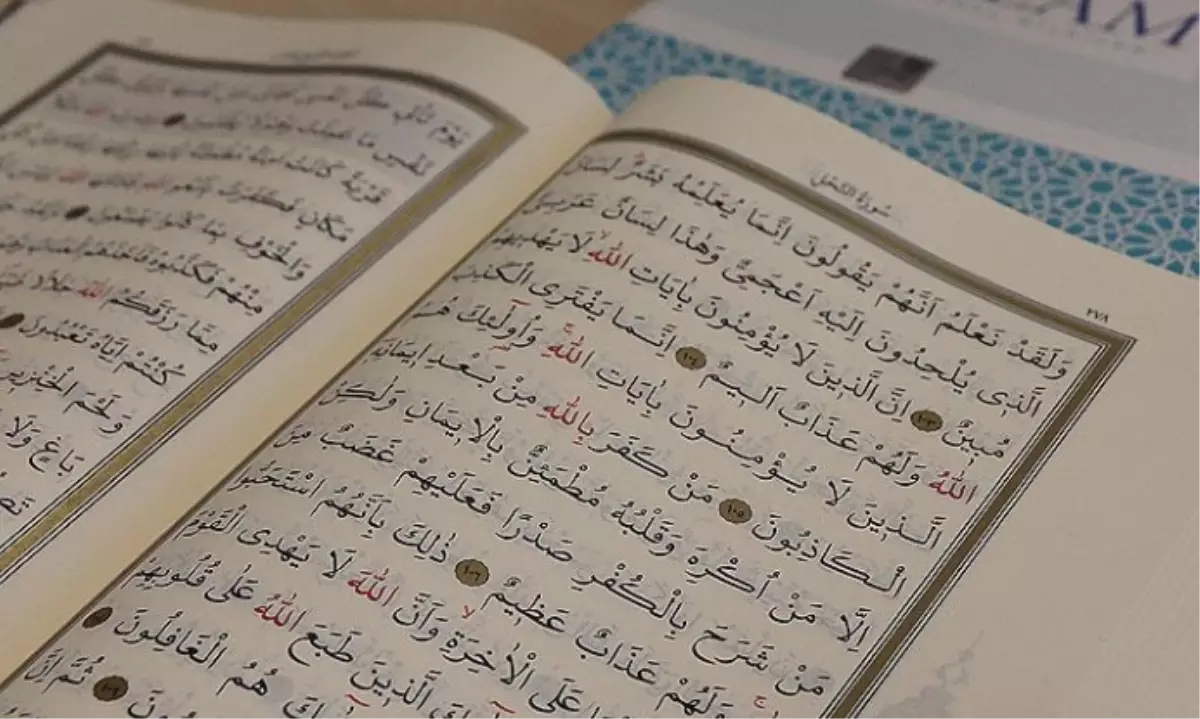 سُورَةُ النَّحْلِ
٢٧٨
وَلَقَدْ نَعْلَمُ اَنَّهُمْ يَقُولُونَ اِنَّمَا يُعَلِّمُهُ بَشَرٌ لِسَانُ
الَّذِى يُلْحِدُونَ اِلَيْهِ اَعْجَمِىٌّ وَهٰذَا لِسَانٌ عَرَبِىٌّ
مُبِينٌ ١٠٣ اِنَّ الَّذِينَ لَا يُؤْمِنُونَ بِاٰيَاتِ اللّٰهِ لَا يَهْدِيهِمُ
اللّٰهُ وَلَهُمْ عَذَابٌ اَلِيمٌ ١٠٤ اِنَّمَا يَفْتَرِى الْكَذِبَ
الَّذِينَ لَا يُؤْمِنُونَ بِاٰيَاتِ اللّٰهِ وَاُولٰٓئِكَ هُمُ
الْكَاذِبُونَ ١٠٥ مَنْ كَفَرَ بِاللّٰهِ مِنْ بَعْدِ اِيمَانِهِ
اِلَّا مَنْ اُكْرِهَ وَقَلْبُهُ مُطْمَئِنٌّ بِالْاِيمَانِ وَلٰكِنْ
مَنْ شَرَحَ بِالْكُفْرِ صَدْرًا فَعَلَيْهِمْ غَضَبٌ مِنَ
وَلَهُمْ عَذَابٌ عَظِيمٌ ١٠٦ ذٰلِكَ بِاَنَّهُمُ اسْتَحَبُّوا
عَلَى الْاٰخِرَةِ وَاَنَّ اللّٰهَ لَا يَهْدِى الْقَوْمَ
الَّذِينَ طَبَعَ اللّٰهُ عَلٰى قُلُوبِهِمْ
هُمُ الْغَافِلُونَ
ثُمَّ اِنَّ
يَوْمَ تَأْتِى كُلُّ نَفْسٍ
نَفْسٍ مَا عَمِلَتْ
قَرْيَةً كَانَتْ اٰمِنَةً
مَكَانٍ فَكَفَرَتْ بِاَنْعُمِ اللّٰهِ
وَالْخَوْفِ بِمَا كَانُوا يَصْنَعُونَ
مِنْهُمْ فَكَذَّبُوهُ فَاَخَذَهُمُ الْعَذَابُ
مِمَّا رَزَقَكُمُ اللّٰهُ حَلَالًا
كُنْتُمْ اِيَّاهُ تَعْبُدُونَ
وَلَحْمَ الْخِنْزِيرِ
بَاغٍ وَلَا